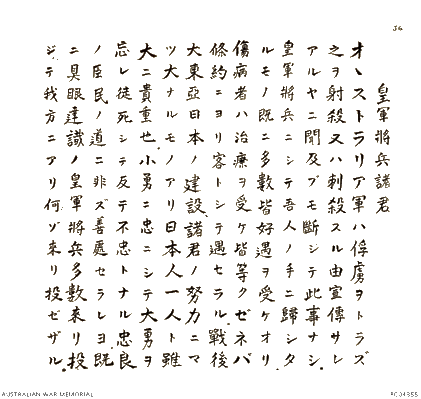 36
皇軍將兵諸君
オヽストラリア軍ハ俘虜ヲトラズ
之ヲ射殺又ハ刺殺スル由宣傳サレ
アルヤニ聞及ブモ斷ジテ此事ナシ.
皇軍將兵ニシテ吾人ノ手ニ歸シタ
ルモノ既ニ多數皆好遇ヲ受ケオリ
傷病者ハ治療ヲ受ケ皆等クゼネバ
條約ニヨリ客トシテ遇セラル.戰後
大東亞日本ノ建設、諸君ノ努力ニマ
ツ大ナルモノアリ日本人一人ト雖
大ニ貴重也.小勇ニ忠ニシテ大勇ヲ
忘レ徒死シテ反テ不忠トナル忠良
ノ臣民ノ道ニ非ズ善處セラレヨ.既
ニ具眼達識ノ皇軍將兵多數來リ投
ジテ我方ニアリ何ゾ來リ投ゼザル.
AUSTRALIAN WAR MEMORIAL
RC04355